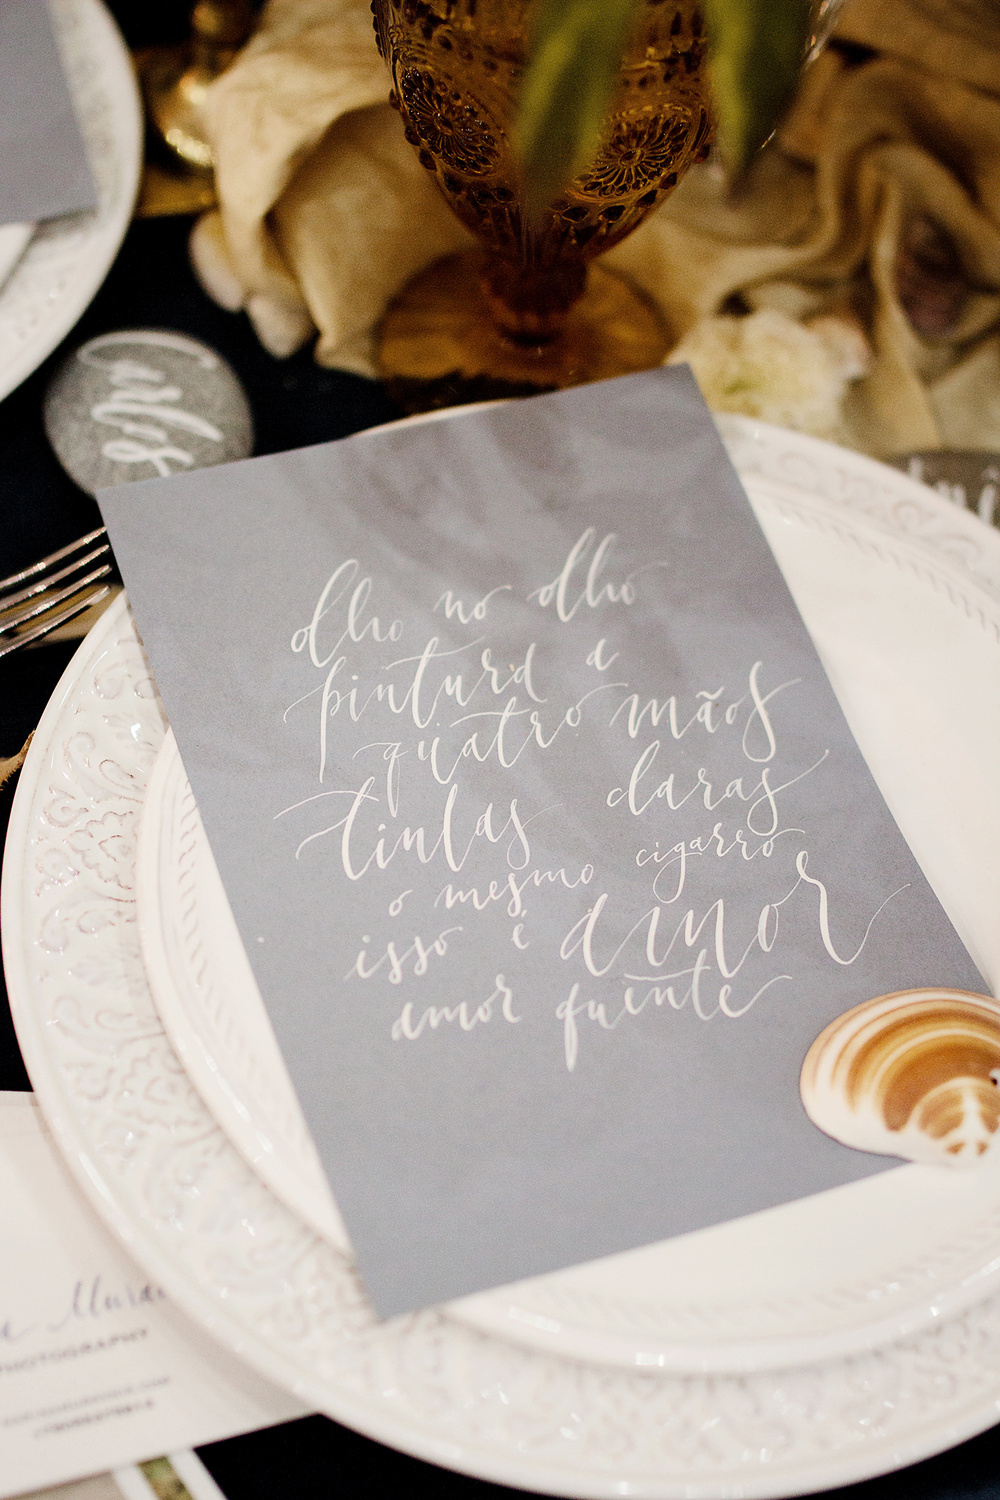 Carlos
olho no olho
pintura a
quatro mãos
tintas claras
o mesmo cigarro
isso é amor
amor quente
PHOTOGRAPHY